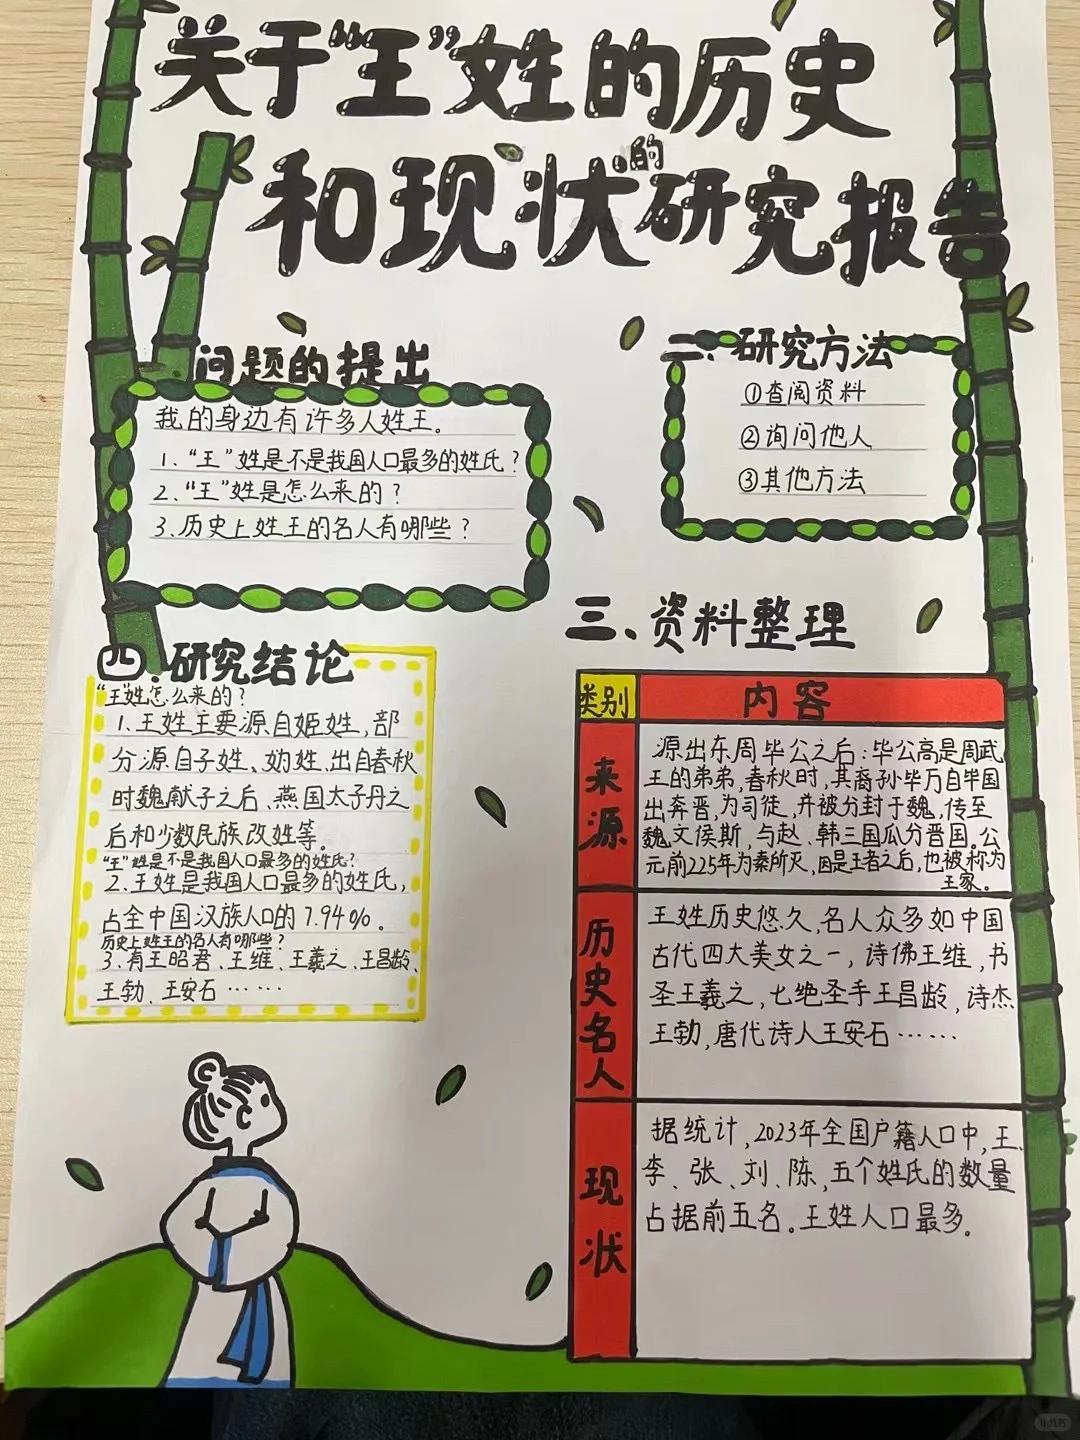 关于“王”姓的历史
和现状的研究报告
问题的提出
我的身边有许多人姓王。
1.“王”姓是不是我国人口最多的姓氏?
2.“王”姓是怎么来的?
3.历史上姓王的名人有哪些?
二、研究方法
①查阅资料
②询问他人
③其他方法
三、资料整理
类别 内容
来源
源出东周毕公之后:毕公高是周武
王的弟弟,春秋时,其裔孙毕万自毕国
出奔晋,为司徒,并被分封于魏,传至
魏文侯斯,与赵、韩三国瓜分晋国。公
元前225年为秦所灭,因是王者之后,也被称为
王家。
历史名人
王姓历史悠久,名人众多如中国
古代四大美女之一,诗佛王维,书
圣王羲之,七绝圣手王昌龄,诗杰
王勃,唐代诗人王安石……
现状
据统计,2023年全国户籍人口中,王、
李、张、刘、陈,五个姓氏的数量
占据前五名。王姓人口最多。
四、研究结论
“王姓怎么来的?
1.王姓主要源自姬姓,部
分源自子姓、妫姓、出自春秋
时魏献子之后、燕国太子丹之
后和少数民族改姓等。
“王”姓是不是我国人口最多的姓氏?
2.王姓是我国人口最多的姓氏,
占全中国汉族人口的7.94%。
历史上姓王的名人有哪些?
3.有王昭君、王维、王羲之、王昌龄、
王勃、王安石……
小红书